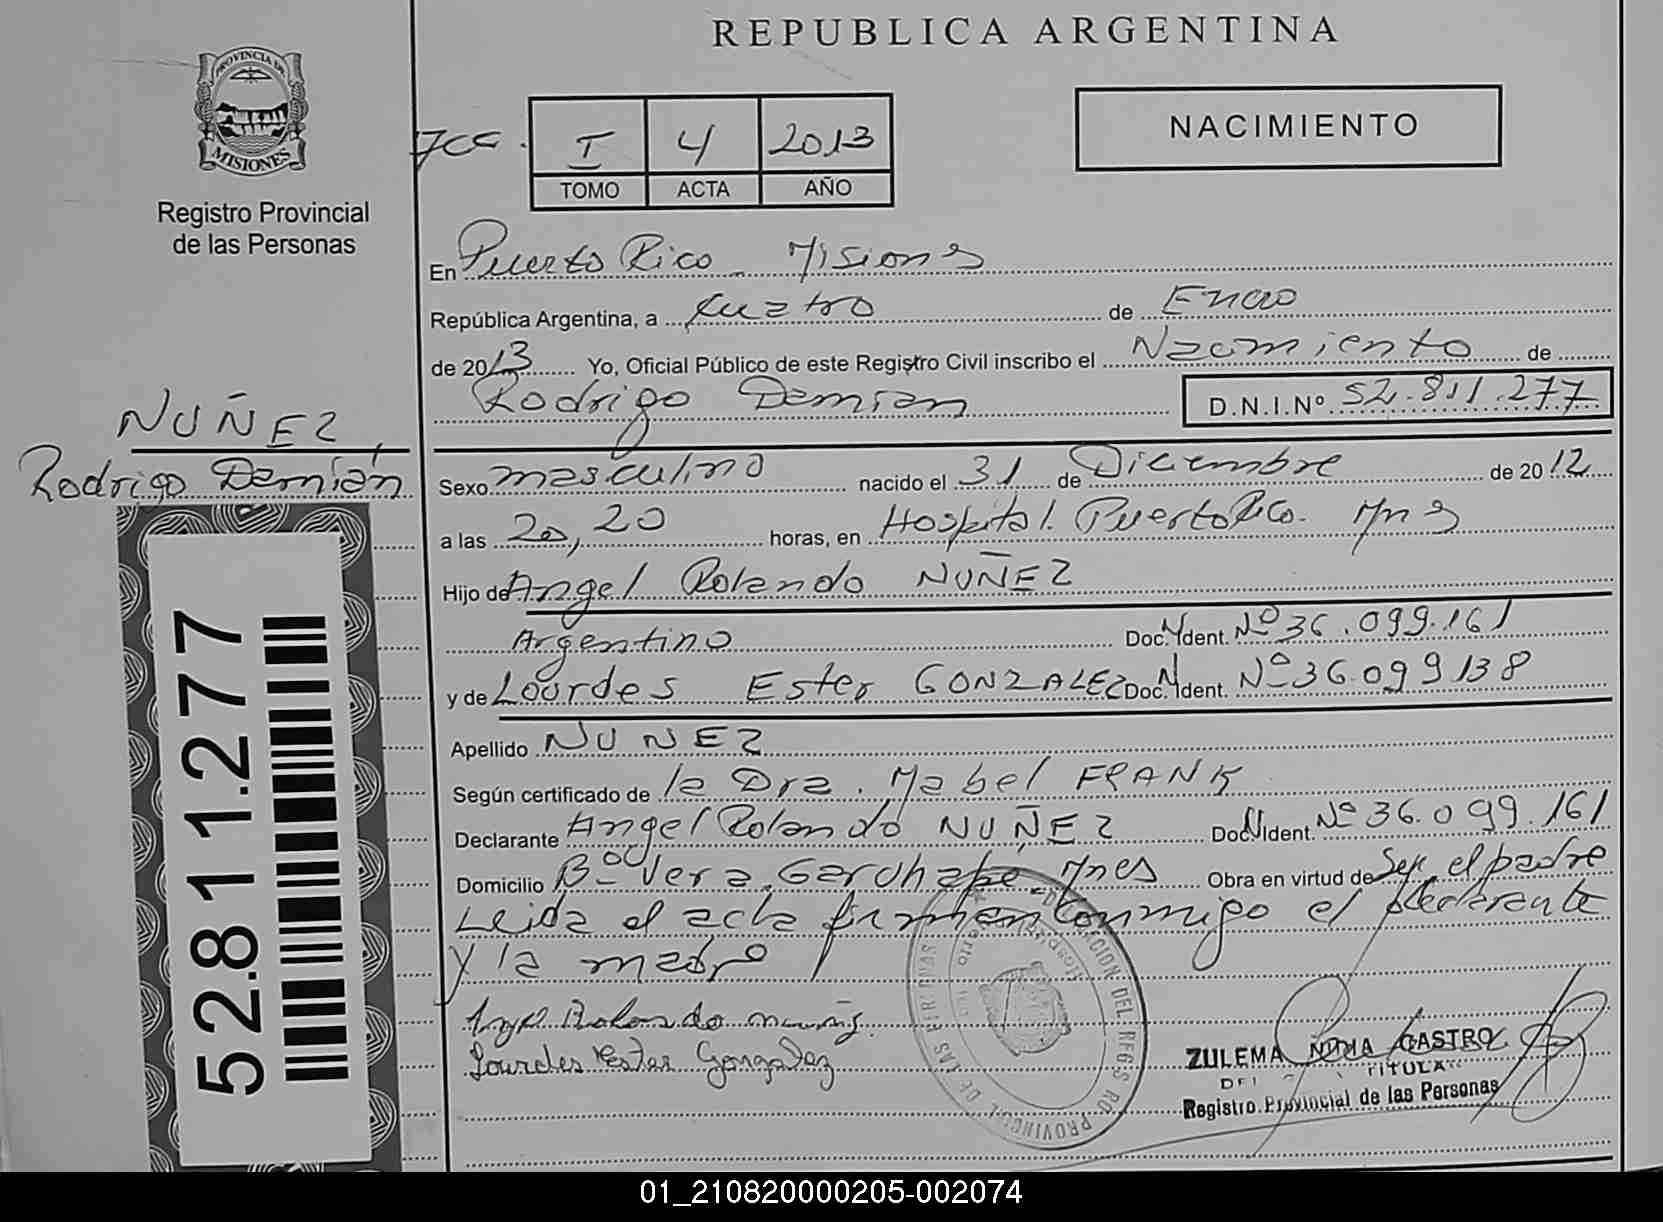 REPUBLICA ARGENTINA
PROVINCIA DE
MISIONES
Registro Provincial
de las Personas
I 4 2013
TOMO ACTA AÑO
NACIMIENTO
En Puerto Rico Misiones
República Argentina, a cuatro de Enero
de 2013 Yo, Oficial Público de este Registro Civil inscribo el Nacimiento de
Rodrigo Damian D.N.I.Nº 52.811.277
NUÑEZ,
Rodrigo Damián
Sexo masculino nacido el 31 de Diciembre de 2012
a las 20,20 horas, en Hospital. Puerto Rico. Mnes
Hijo de Angel Rolando NUÑEZ
Argentino Doc. Ident. Nº 36.099.161
y de Lourdes Ester GONZALEZ Doc. Ident. Nº 36.099138
Apellido NUÑEZ
Según certificado de la Dra. Mabel FRANK
Declarante Angel Rolando NUÑEZ Doc. Ident. Nº 36.099.161
Domicilio Bº Vera, Garuhapé, Mnes Obra en virtud de Ser el padre
Leida el acta firman conmigo el declarante
y la madre
Lourdes Ester Gonzalez
ZULEMA NIDIA CASTRO
TITULAR
Registro Provincial de las Personas
52.811.277
01_210820000205-002074